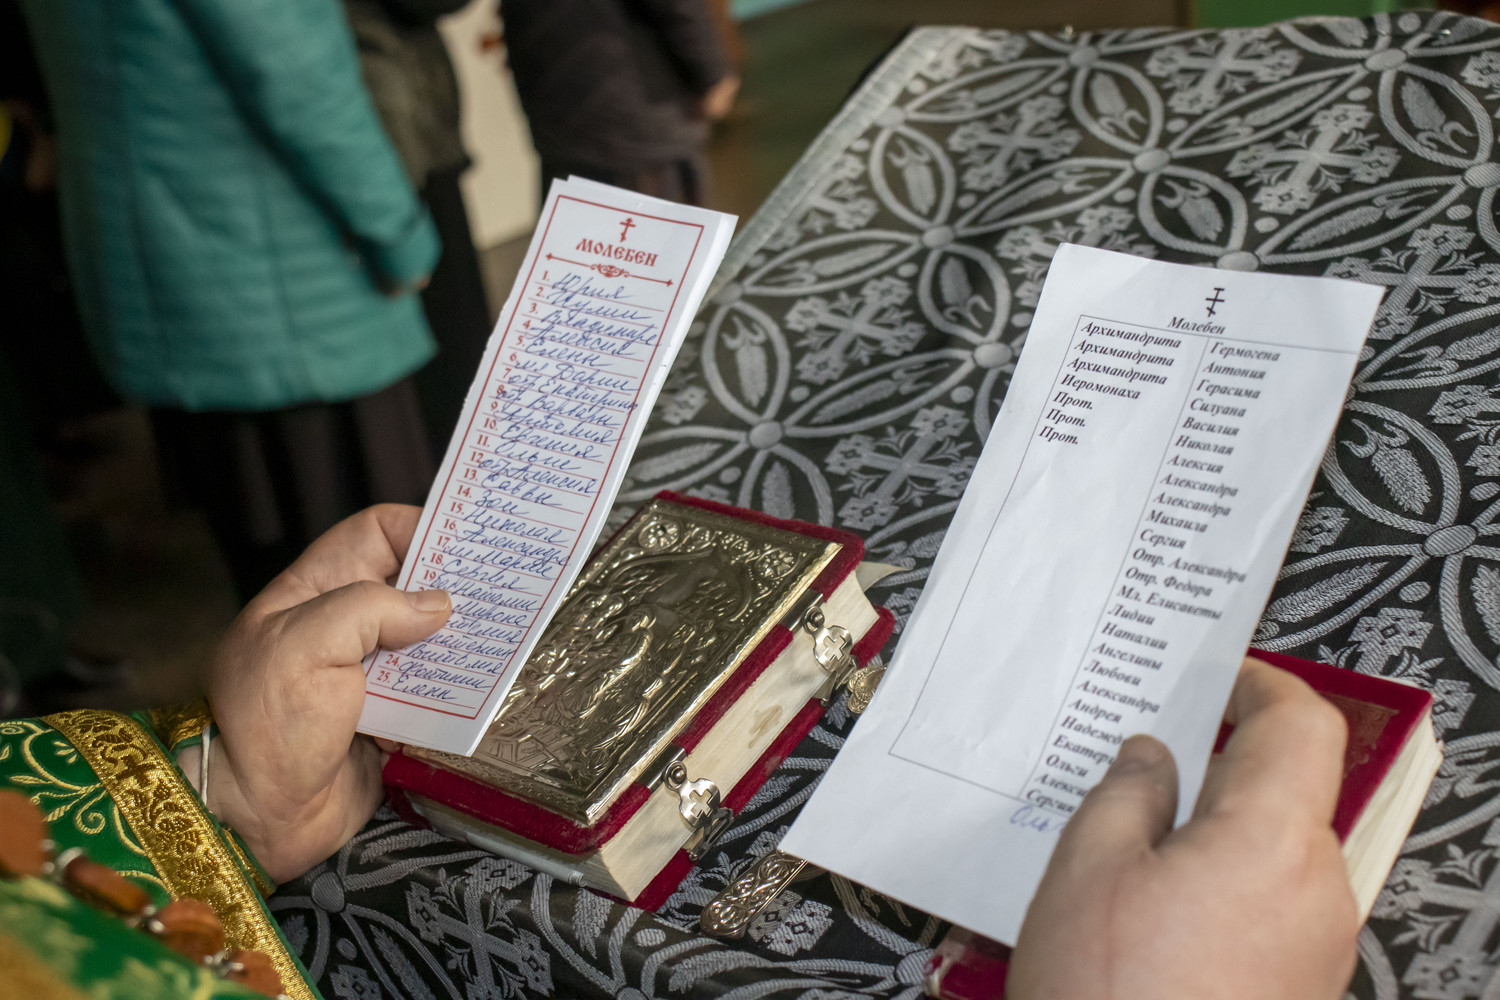 МОЛЕБЕН
1. Юрия
2. Иулии
3. Владимира
4. Алексия
5. Елены
6. мл. Дарии
7. отр. Екатерины
8. отр. Варвары
9. Виталия
10. Евгения
11. Ольги
12. отр. Алексия
13. Раввы
14. Зои
15. Николая
16. Александра
17. мл. Марии
18. Сергия
19. Наталии
Мирона
Виталия
24. Фотинии
25. Елены
Молебен
Архимандрита Гермогена
Архимандрита Антония
Архимандрита Герасима
Иеромонаха Силуана
Прот. Василия
Прот. Николая
Прот. Алексия
Александра
Александра
Михаила
Сергия
Отр. Александра
Отр. Федора
Мл. Елисаветы
Лидии
Наталии
Ангелины
Любови
Александра
Андрея
Надежд
Екатери
Ольги
Алекси
Сергия